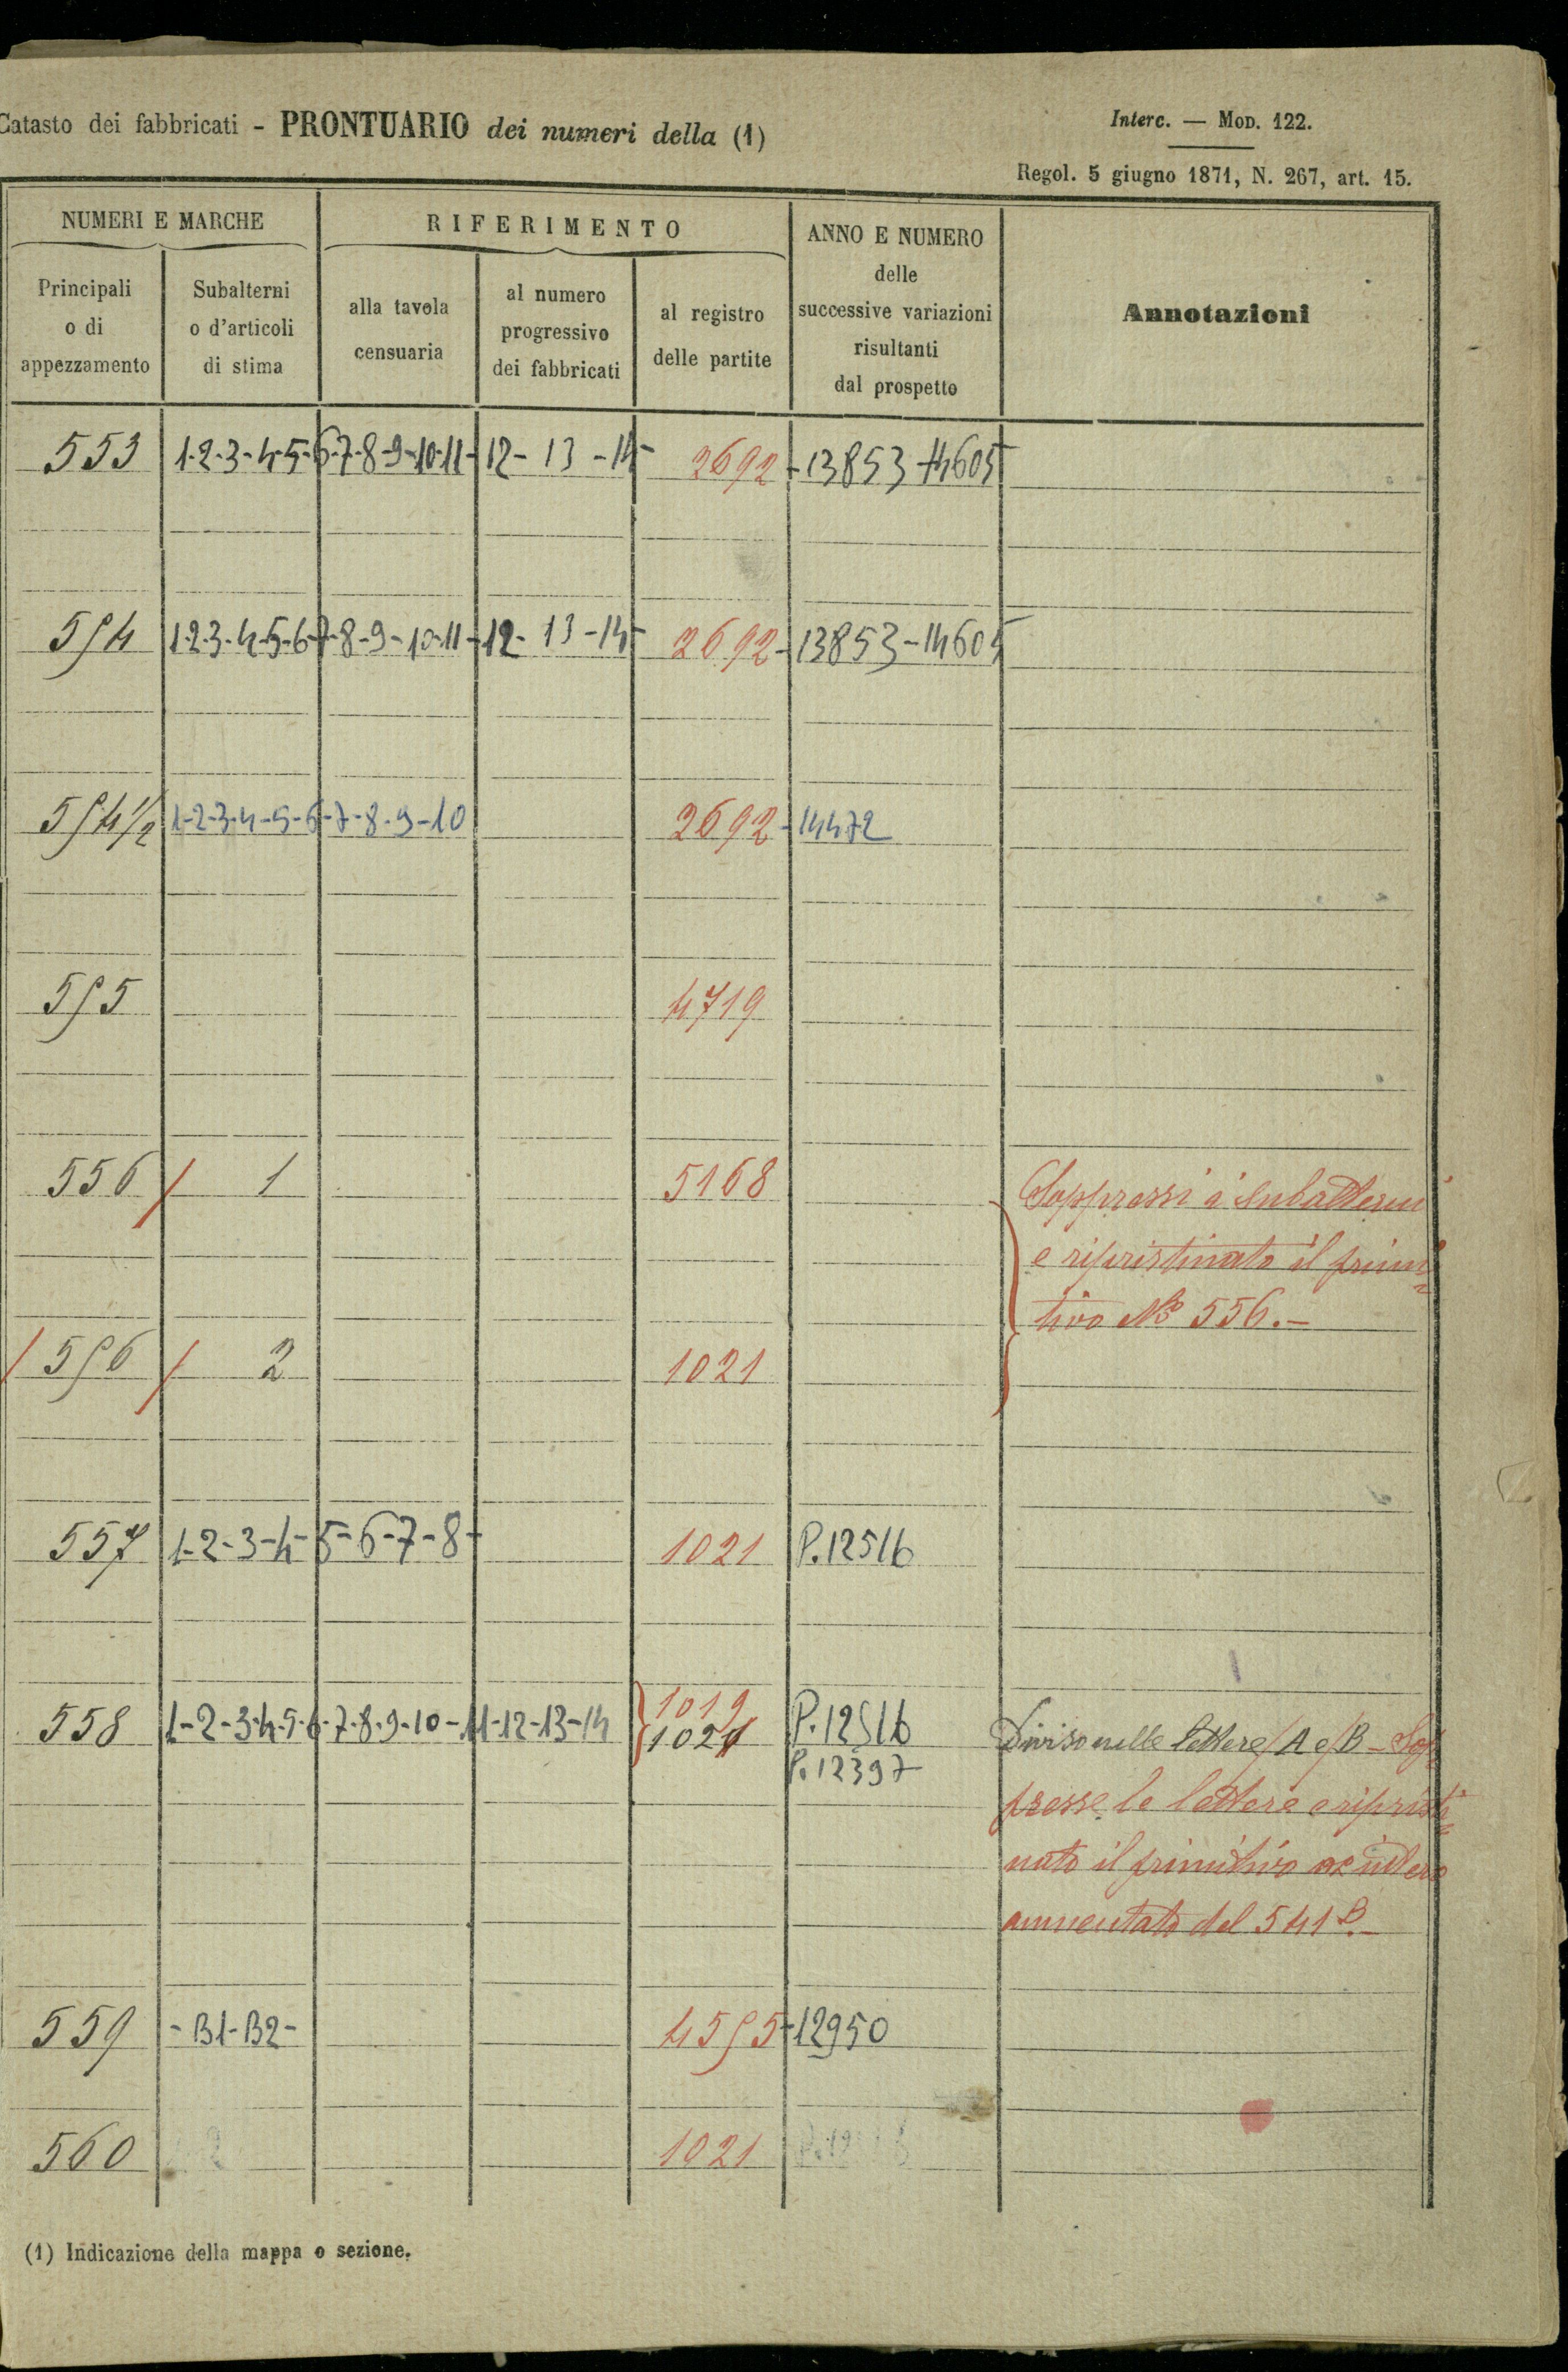 Catasto dei fabbricati - PRONTUARIO dei numeri della (1)
Interc. — MOD. 122.
Regol. 5 giugno 1871, N. 267, art. 15.
NUMERI E MARCHE
RIFERIMENTO
ANNO E NUMERO
delle
successive variazioni
risultanti
dal prospetto
Annotazioni
Principali
o di
appezzamento
Subalterni
o d'articoli
di stima
alla tavola
censuaria
al numero
progressivo
dei fabbricati
al registro
delle partite
553 1-2-3-4-5-6-7-8-9-10-11-12-13-14- 2692 -13853-14605
554 1-2-3-4-5-6-7-8-9-10-11-12-13-14- 2692 -13853-14605
554 1/2 1-2-3-4-5-6-7-8-9-10 2692 -14472
555 4719
556 / 1 5168 Soppressi i subalterni
e ripristinato il primi=
tivo No 556.-
/ 556 / 2 1021
557 1-2-3-4-5-6-7-8- 1021 P.12516
558 1-2-3-4-5-6-7-8-9-10-11-12-13-14 1019
1021 P.12516 Diviso nelle lettere /A e /B - Sop=
P.12397
presse le lettere e ripristi=
nato il primitivo
aumentato del 541 B.-
559 -B1-B2- 4595 -12950
560 2 1021
(1) Indicazione della mappa o sezione.